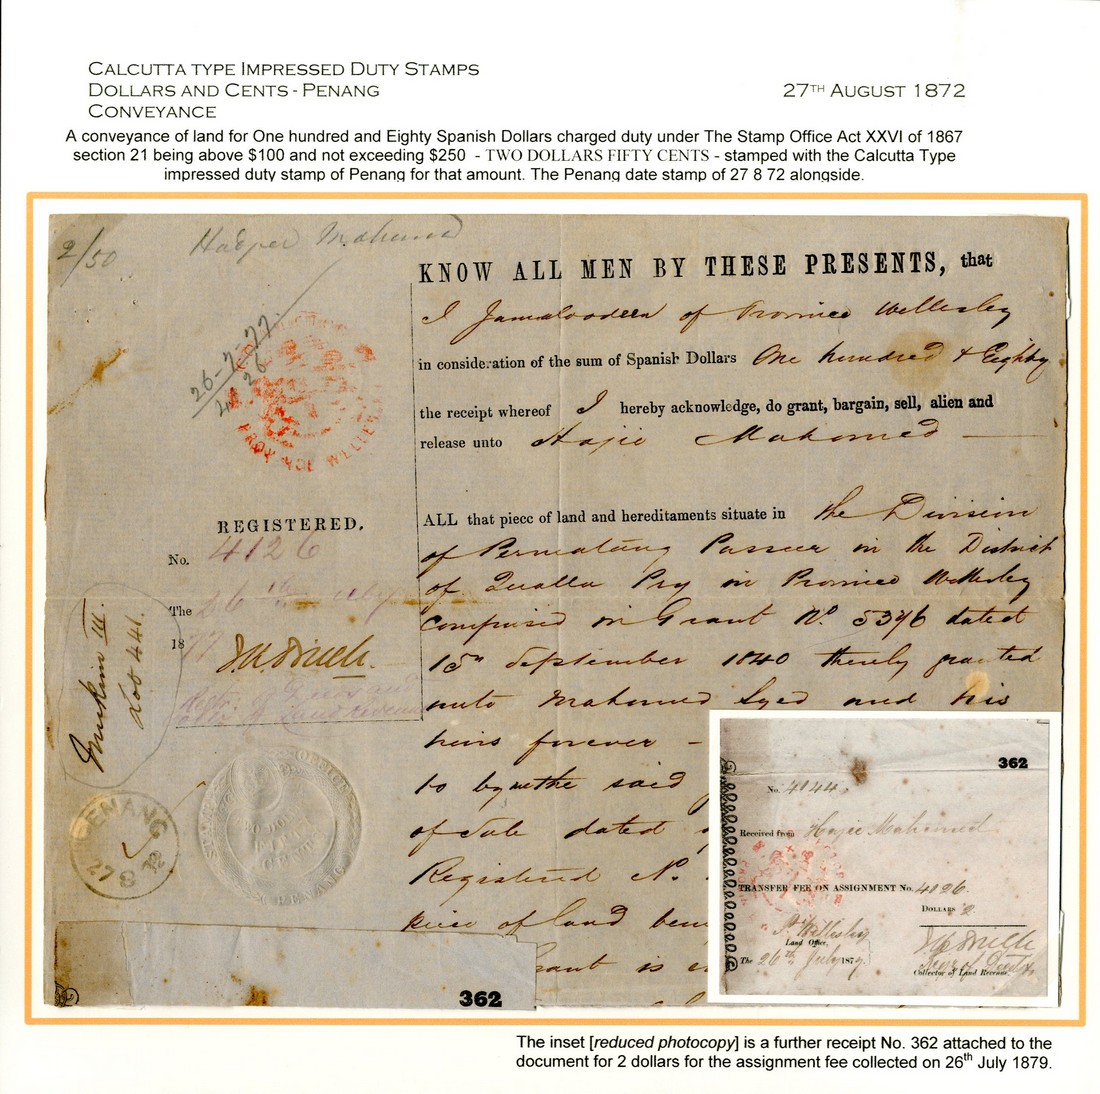 CALCUTTA TYPE IMPRESSED DUTY STAMPS
DOLLARS AND CENTS - PENANG
CONVEYANCE
27TH AUGUST 1872
A conveyance of land for One hundred and Eighty Spanish Dollars charged duty under The Stamp Office Act XXVI of 1867
section 21 being above $100 and not exceeding $250 - TWO DOLLARS FIFTY CENTS - stamped with the Calcutta Type
impressed duty stamp of Penang for that amount. The Penang date stamp of 27 8 72 alongside.
2/50
26-7-77
4126
REGISTERED.
No. 4126
The 26th July
1877
Mukim III.
Lot 441.
PENANG
27 8 72
362
KNOW ALL MEN BY THESE PRESENTS, that
I Jamaloodeen of Province Wellesley
in consideration of the sum of Spanish Dollars One hundred & Eighty
the receipt whereof I hereby acknowledge, do grant, bargain, sell, alien and
release unto Hajie Mahomed
ALL that piece of land and hereditaments situate in the Division
of Permatang Passeer in the District
of Qualla Pry in Province Wellesley
comprised in Grant No. 5376 dated
15th September 1840 thereby granted
unto Mahomed Syed and his
heirs forever -
to by the said
of Sale dated
Registered No.
piece of land
Grant is
362
No. 4144
Received from Hajie Mahomed
TRANSFER FEE ON ASSIGNMENT No. 4126.
DOLLARS 2
P. Wellesley
Land Office,
The 26th July 1877.
Collector of Land Revenue.
The inset [reduced photocopy] is a further receipt No. 362 attached to the
document for 2 dollars for the assignment fee collected on 26th July 1879.